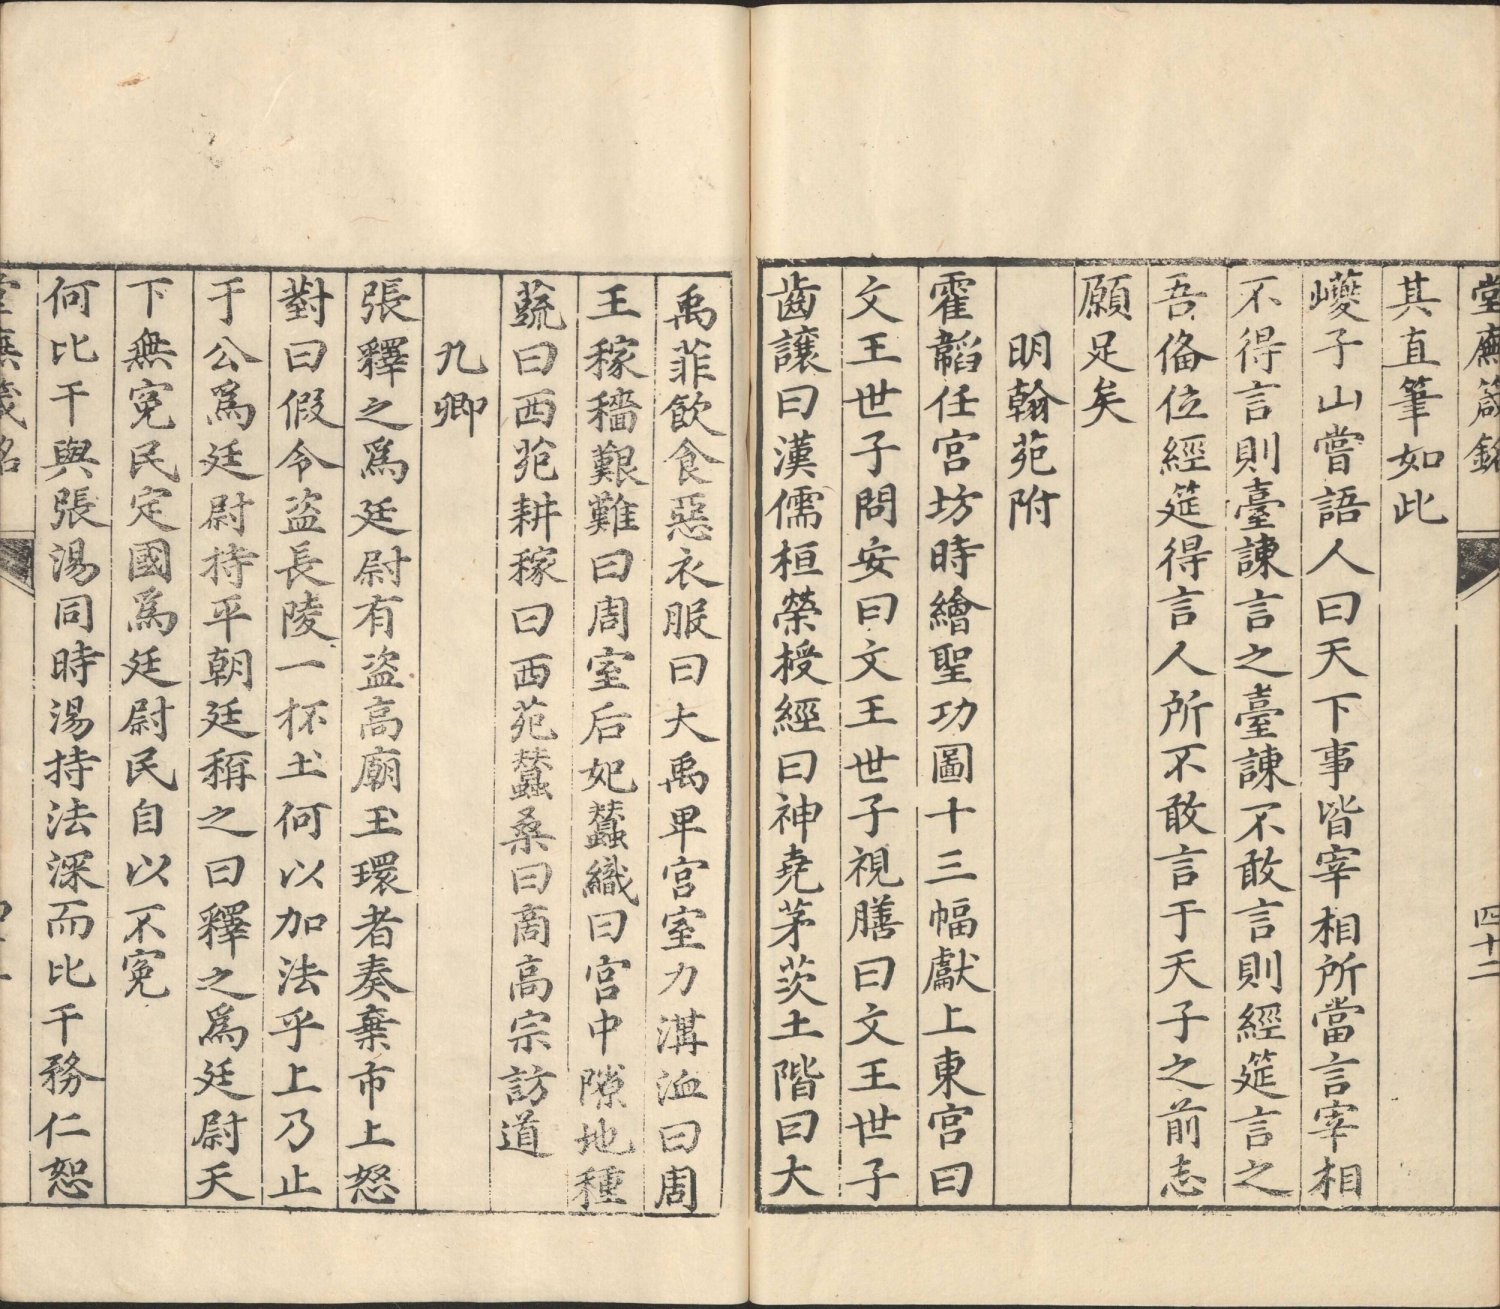 堂廡箴銘
四十二
其直筆如此
巙子山嘗語人曰天下事皆宰相所當言宰相
不得言則臺諫言之臺諫不敢言則經筵言之
吾俻位經筵得言人所不敢言于天子之前志
願足矣
明翰苑附
霍韜任宮坊時繪聖功圖十三幅獻上東宮曰
文王世子問安曰文王世子視膳曰文王世子
齒讓曰漢儒桓榮授經曰神堯茅茨土階曰大
禹菲飲食惡衣服曰大禹卑宮室力溝洫曰周
王稼穡艱難曰周室后妃蠶織曰宮中隙地種
蔬曰西苑耕稼曰西苑蠶桑曰商高宗訪道
九卿
張釋之爲廷尉有盜高廟玉環者奏棄市上怒
對曰假令盜長陵一杯土何以加法乎上乃止
于公爲廷尉持平朝廷稱之曰釋之爲廷尉天
下無冤民定國爲廷尉民自以不冤
何比干與張湯同時湯持法深而比干務仁恕
堂廡箴銘